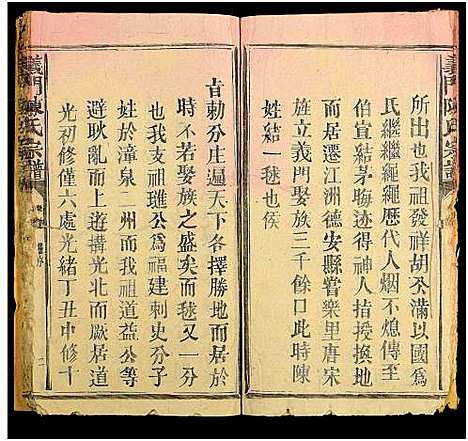 義門陳氏宗譜
所出也我祖發祥胡公滿以國爲
氏繼繼繩繩歷代人烟不熄傳至
伯宣結茅晦迹得神人指授換地
而居遷江洲德安縣嘗樂里唐宋
旌立義門娶族三千餘口此時陳
姓結一毬也俟
旨勅分庄遍天下各擇勝地而居於
時不若娶族之盛矣而毬又一分
也我支祖璡公爲福建刺史分子
姓於漳泉二州而我祖道益公等
避耿亂而上遊搆光北而厥居道
光初修僅六處光緒丁丑中修十
義門陳氏宗譜